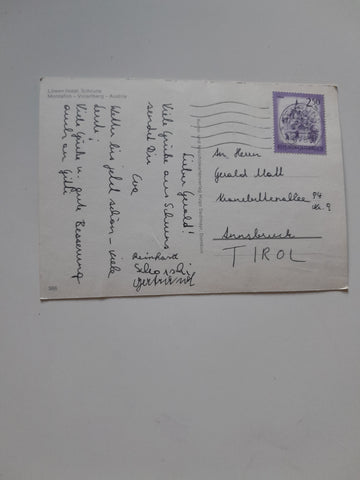 Löwen Hotel, Schruns
Montafon - Vorarlberg - Austria
Lieber Gerald!
Viele Grüße aus Schruns
sendet Dir
Eva
Wetter bis jetzt schön - viele
Leute!
Viele Grüße u. gute Besserung
auch an Gitti
Reinhard
Gertrud
2.50
An Herrn
Gerald Matt
Kranebitterallee 94
Innsbruck
TIROL